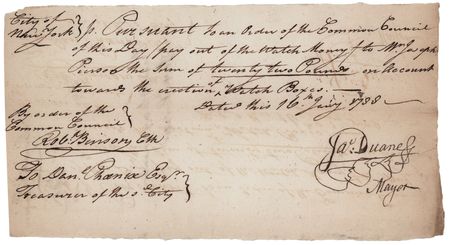 City of
New York } ss. Pursuant to an Order of the Common Council
of this Day / pay out of the Watch Money / to Mr Joseph
Pierson the Sum of twenty two Pounds on Account
towards the erection of Watch Boxes.
Dated this 16th Jany 1788
By order of the
Common Council
Robt Benson, Clk
Jas Duane
Mayor
To Danl Phoenix Esqr
Treasurer of the sd City